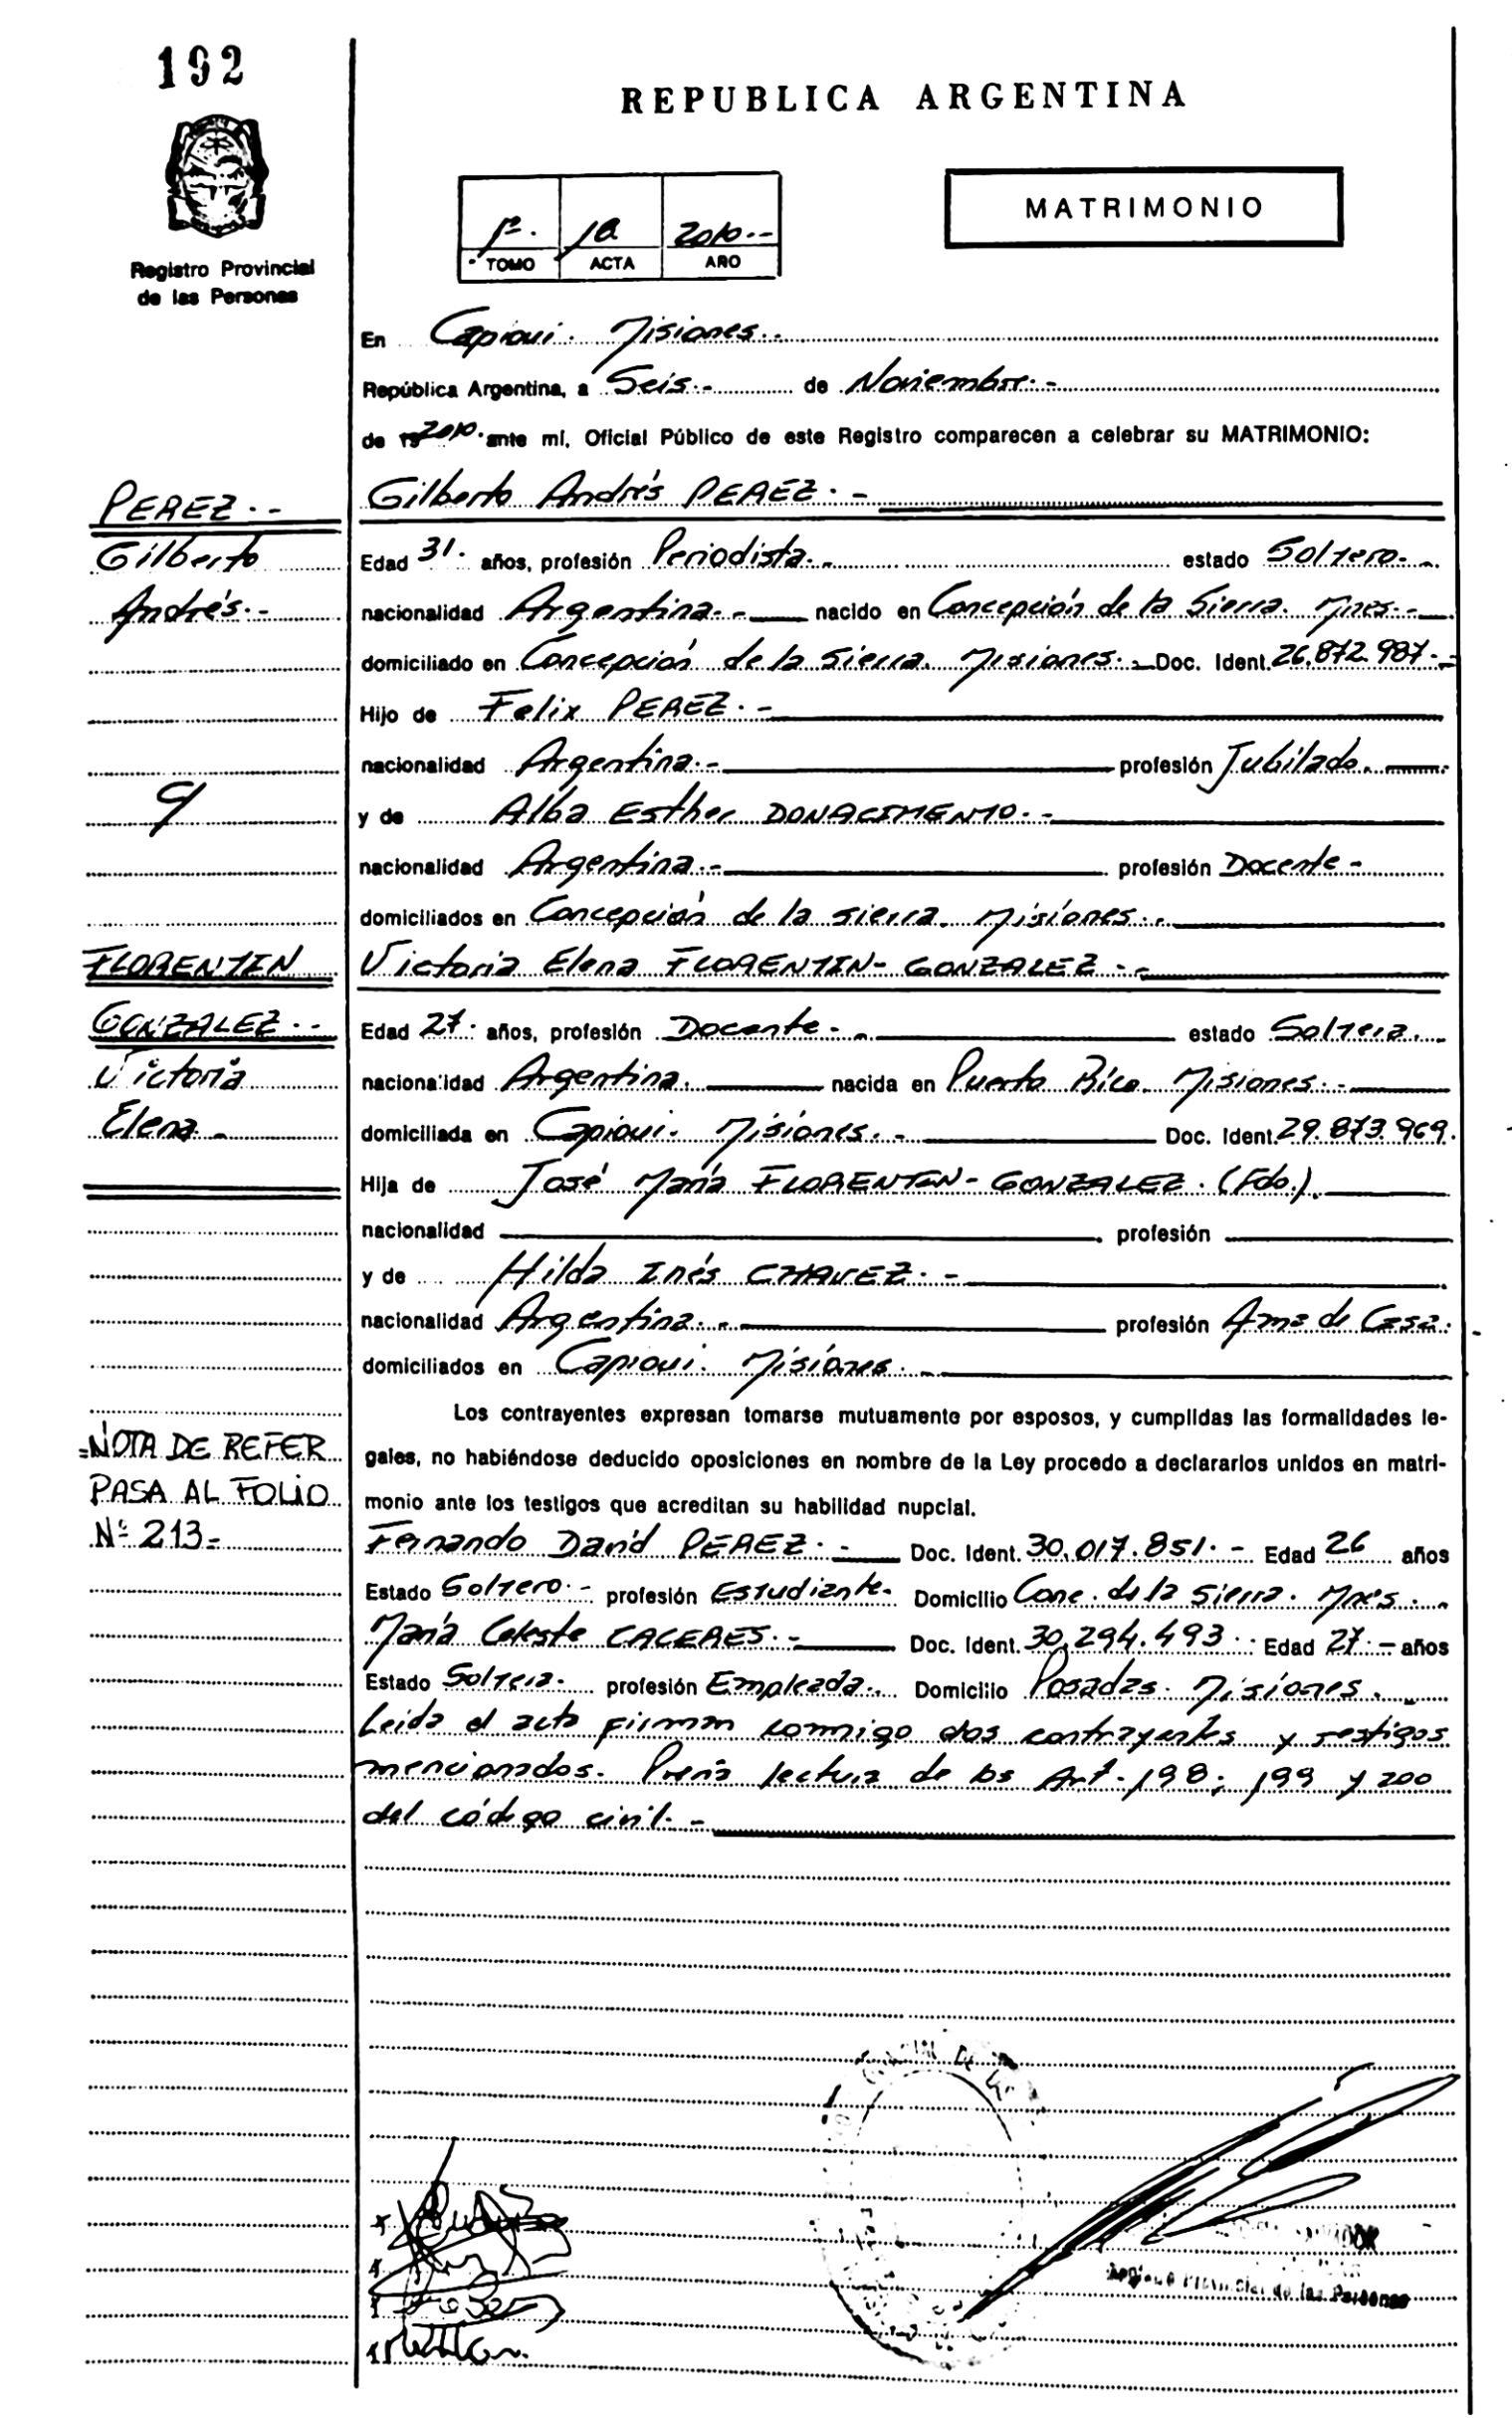 192
REPUBLICA ARGENTINA
Registro Provincial
de las Personas
1º.- 1a 2010.--
TOMO ACTA AÑO
MATRIMONIO
En Capiovi. Misiones.-
República Argentina, a Seis.- de Noviembre.-
de 19 2010. ante mí, Oficial Público de este Registro comparecen a celebrar su MATRIMONIO:
PEREZ.--
Gilberto
Andrés.-
y
Gilberto Andrés PEREZ.-
Edad 31. años, profesión Periodista.- estado Soltero.-
nacionalidad Argentina.- nacido en Concepción de la Sierra. Mnes.-
domiciliado en Concepción de la Sierra. Misiones.- Doc. Ident. 26.872.987.-
Hijo de Felix PEREZ.-
nacionalidad Argentina.- profesión Jubilado.
y de Alba Esther DONACIMENTO.-
nacionalidad Argentina.- profesión Docente-
domiciliados en Concepción de la Sierra. Misiones.-
FLORENTIN
GONZALEZ.--
Victoria
Elena.-
Victoria Elena FLORENTIN-GONZALEZ.-
Edad 27. años, profesión Docente.- estado Soltera.
nacionalidad Argentina. nacida en Puerto Rico. Misiones.-
domiciliada en Capiovi. Misiones.- Doc. Ident. 29.873.969.
Hija de José María FLORENTIN-GONZALEZ. (Fdo.).
nacionalidad profesión
y de Hilda Inés CHAVEZ.-
nacionalidad Argentina.- profesión Ama de Casa.
domiciliados en Capiovi. Misiones.-
Los contrayentes expresan tomarse mutuamente por esposos, y cumplidas las formalidades le-
gales, no habiéndose deducido oposiciones en nombre de la Ley procedo a declararlos unidos en matri-
monio ante los testigos que acreditan su habilidad nupcial.
=NOTA DE REFER
PASA AL FOLIO
Nº 213=
Fernando David PEREZ.- Doc. Ident. 30.017.851.- Edad 26 años
Estado Soltero.- profesión Estudiante. Domicilio Conc. de la Sierra. Mnes.
María Celeste CACERES.- Doc. Ident. 30.294.493. Edad 27.- años
Estado Soltera. profesión Empleada.. Domicilio Posadas. Misiones.
Leida el acta firman conmigo dos contrayentes y testigos
mencionados. Previa lectura de los Art. 198; 199 y 200
del código civil.-
Registro Provincial de las Personas